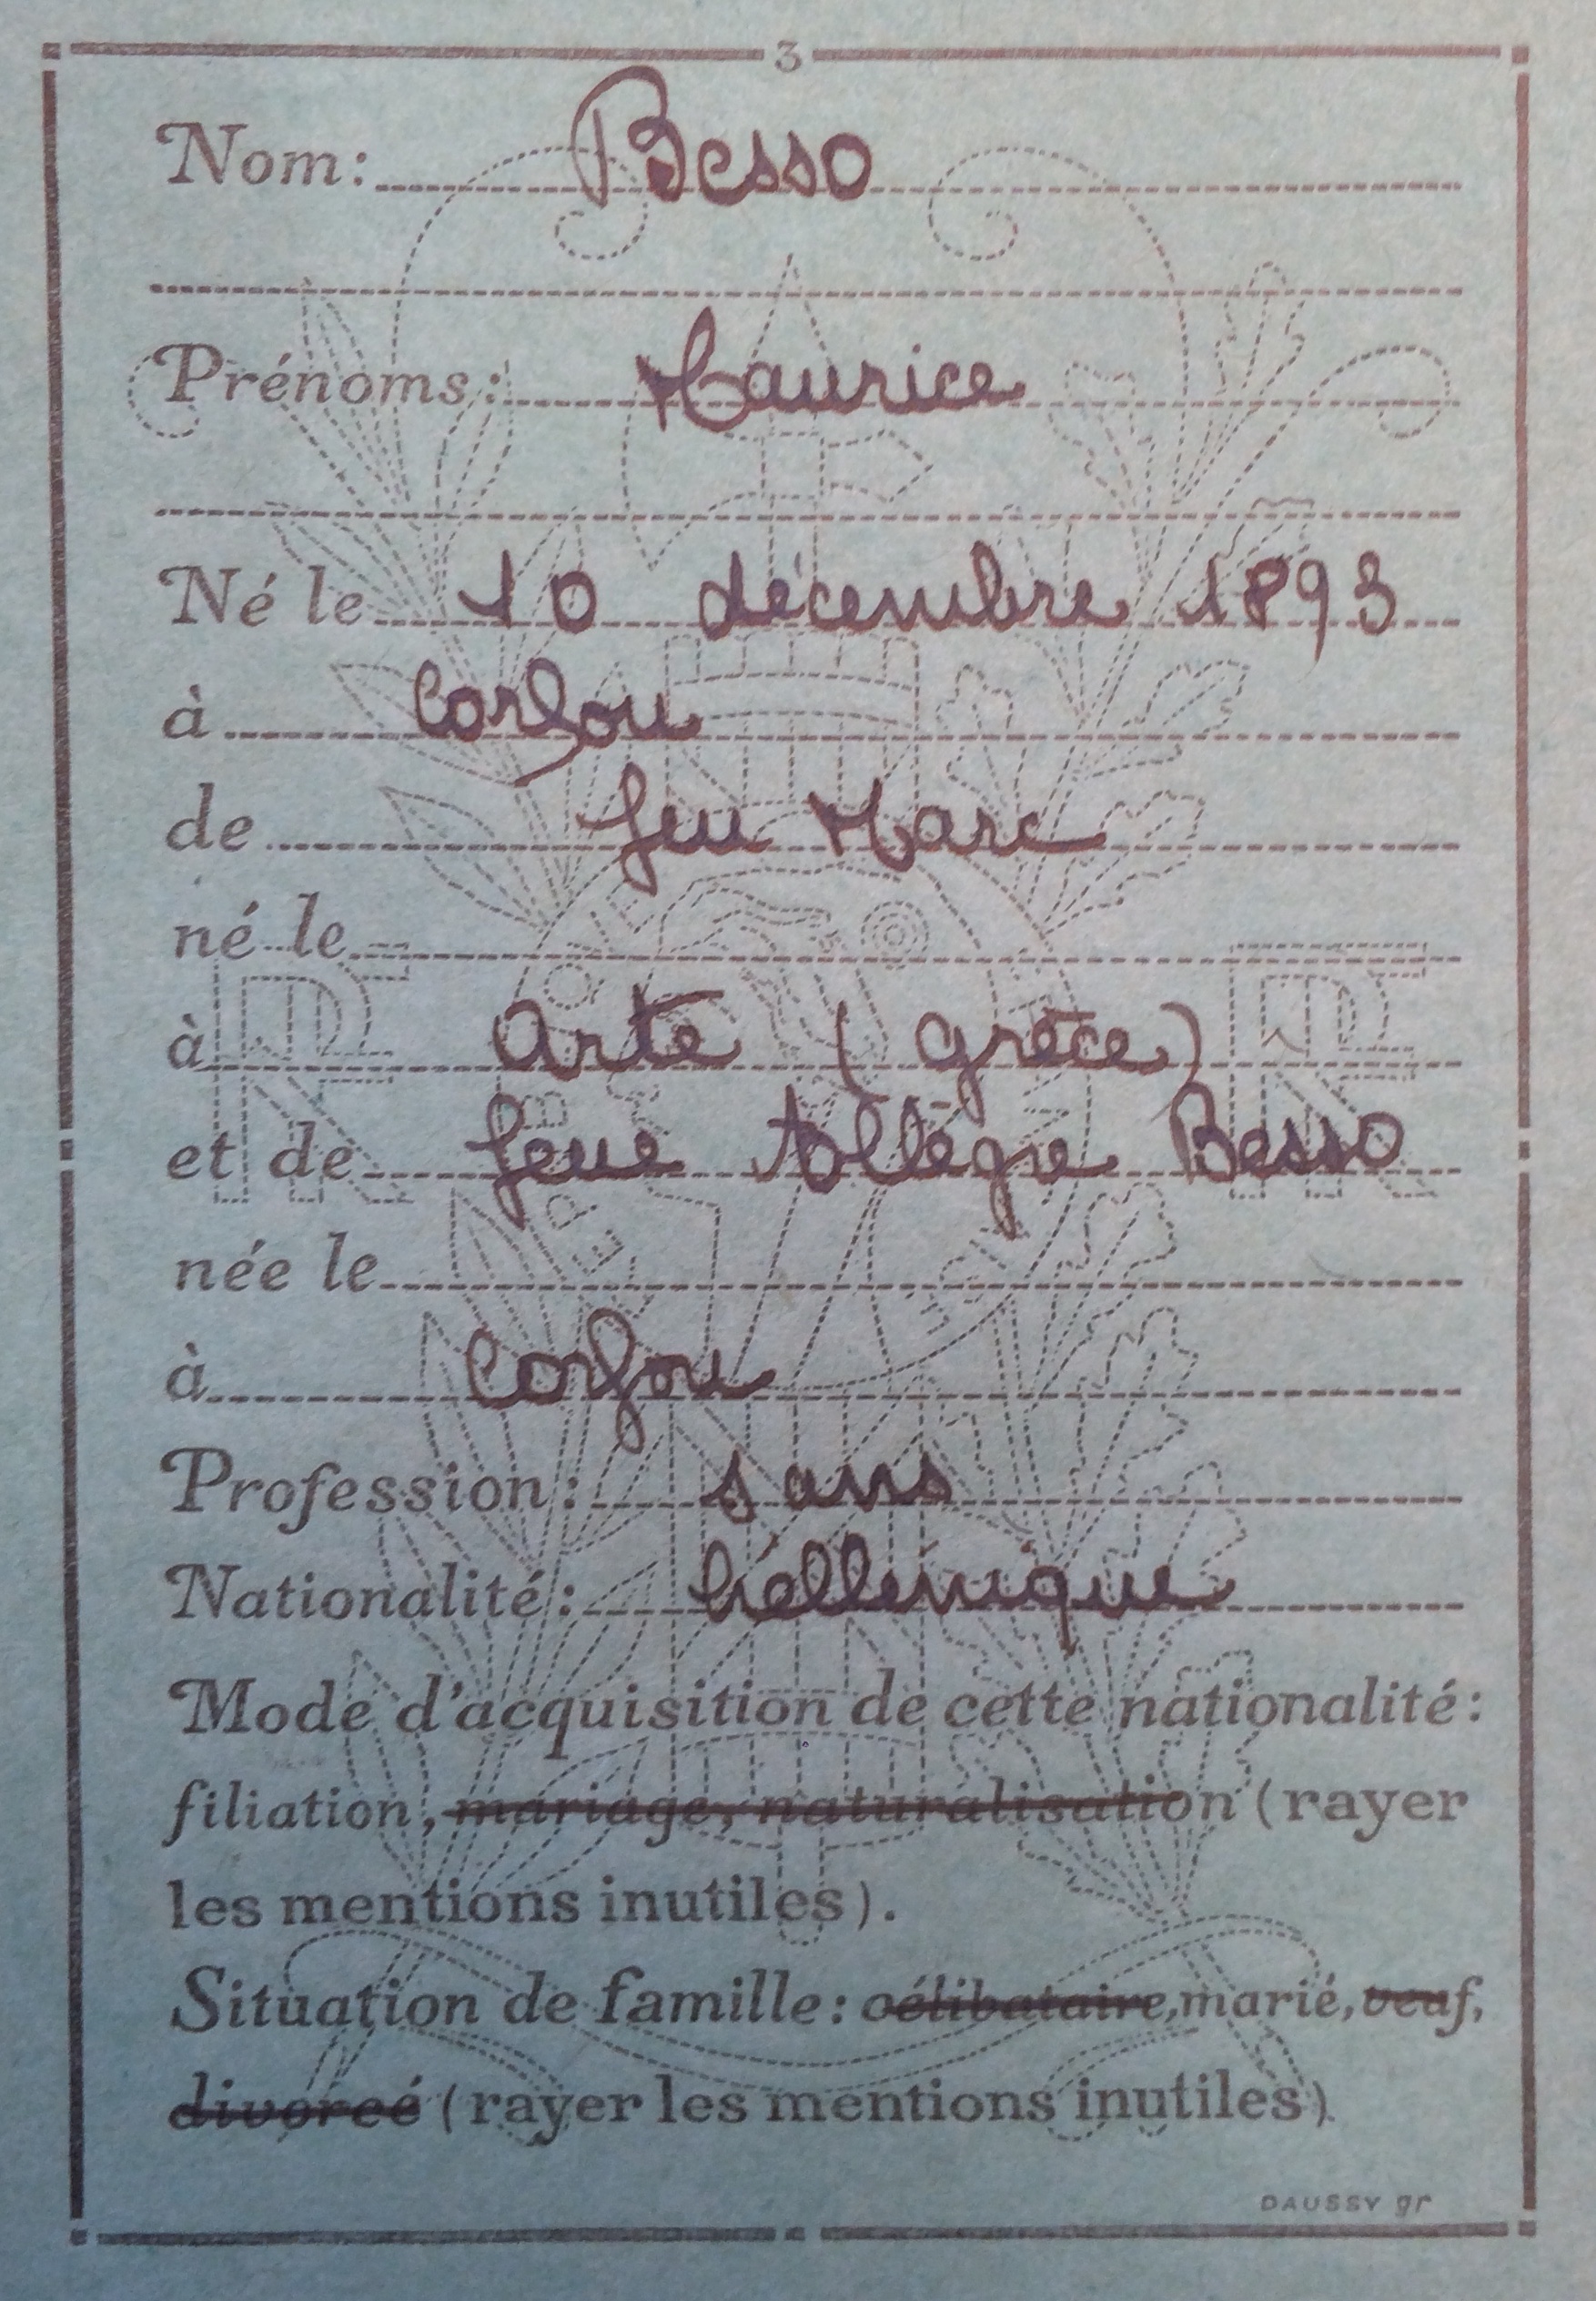 3
Nom: Besso
Prénoms: Maurice
Né le 10 décembre 1893
à Corfou
de feu Marc
né le
à Arte (grèce)
et de feue Allègre Besso
née le
à Corfou
Profession: sans
Nationalité: héllènique
Mode d'acquisition de cette nationalité:
filiation, mariage, naturalisation (rayer
les mentions inutiles).
Situation de famille: célibataire, marié, veuf,
divorcé (rayer les mentions inutiles)
DAUSSY gr